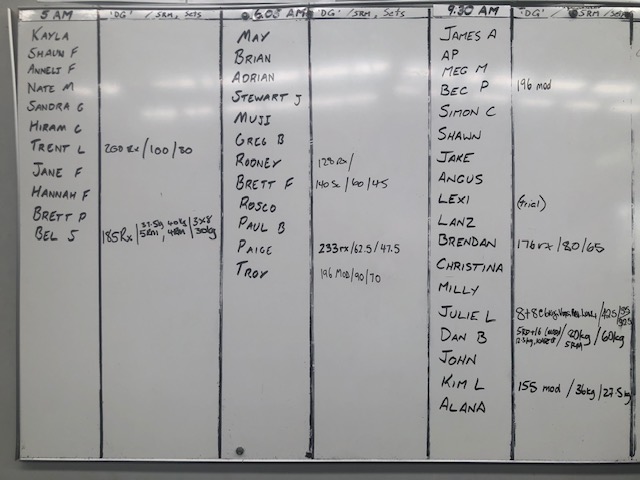 5 AM 'DG' / 5RM, Sets
KAYLA
SHAUN F
ANNELI F
NATE M
SANDRA G
HIRAM G
TRENT L 200 Rx / 100 / 80
JANE F
HANNAH F
BRETT P
BEL S 185Rx / 37.5kg 5RM / 40kg 4RM / 3x8 30kg
6.05 AM 'DG' / 5RM, Sets
MAY
BRIAN
ADRIAN
STEWART J
MUJI
GREG B
RODNEY 128 Rx /
BRETT F 140 Sc / 60 / 45
ROSCO
PAUL B
PAIGE 233 rx / 62.5 / 47.5
TROY 196 MOD / 90 / 70
9.30 AM 'DG' / 5RM / Sets
JAMES A
AP
MEG M
BEC P 196 mod
SIMON C
SHAWN
JAKE
ANGUS
LEXI (trial)
LANZ
BRENDAN 176 rx / 80 / 65
CHRISTINA
MILLY
JULIE L 8+8 @ 6kg / 42.5 /
DAN B 5RD+16 / 70kg 5RM / 60kg
JOHN
KIM L 155 mod / 36kg / 27.5kg
ALANA